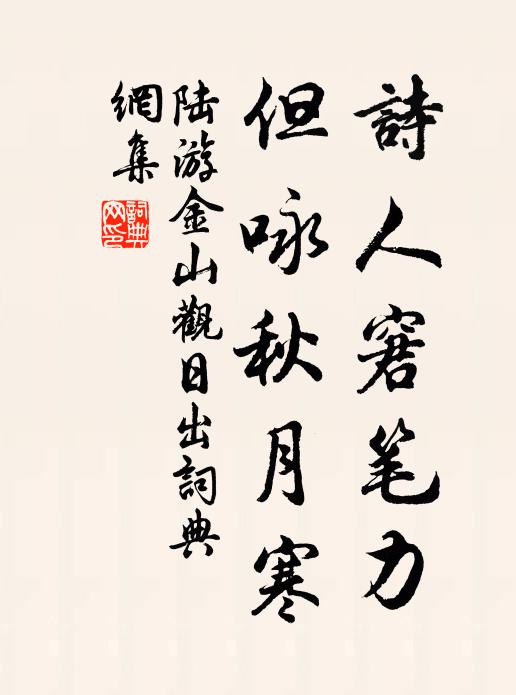 詩人窘笔力
但咏秋月寒
陆游金山觀日出詞典
網集
詞典网印